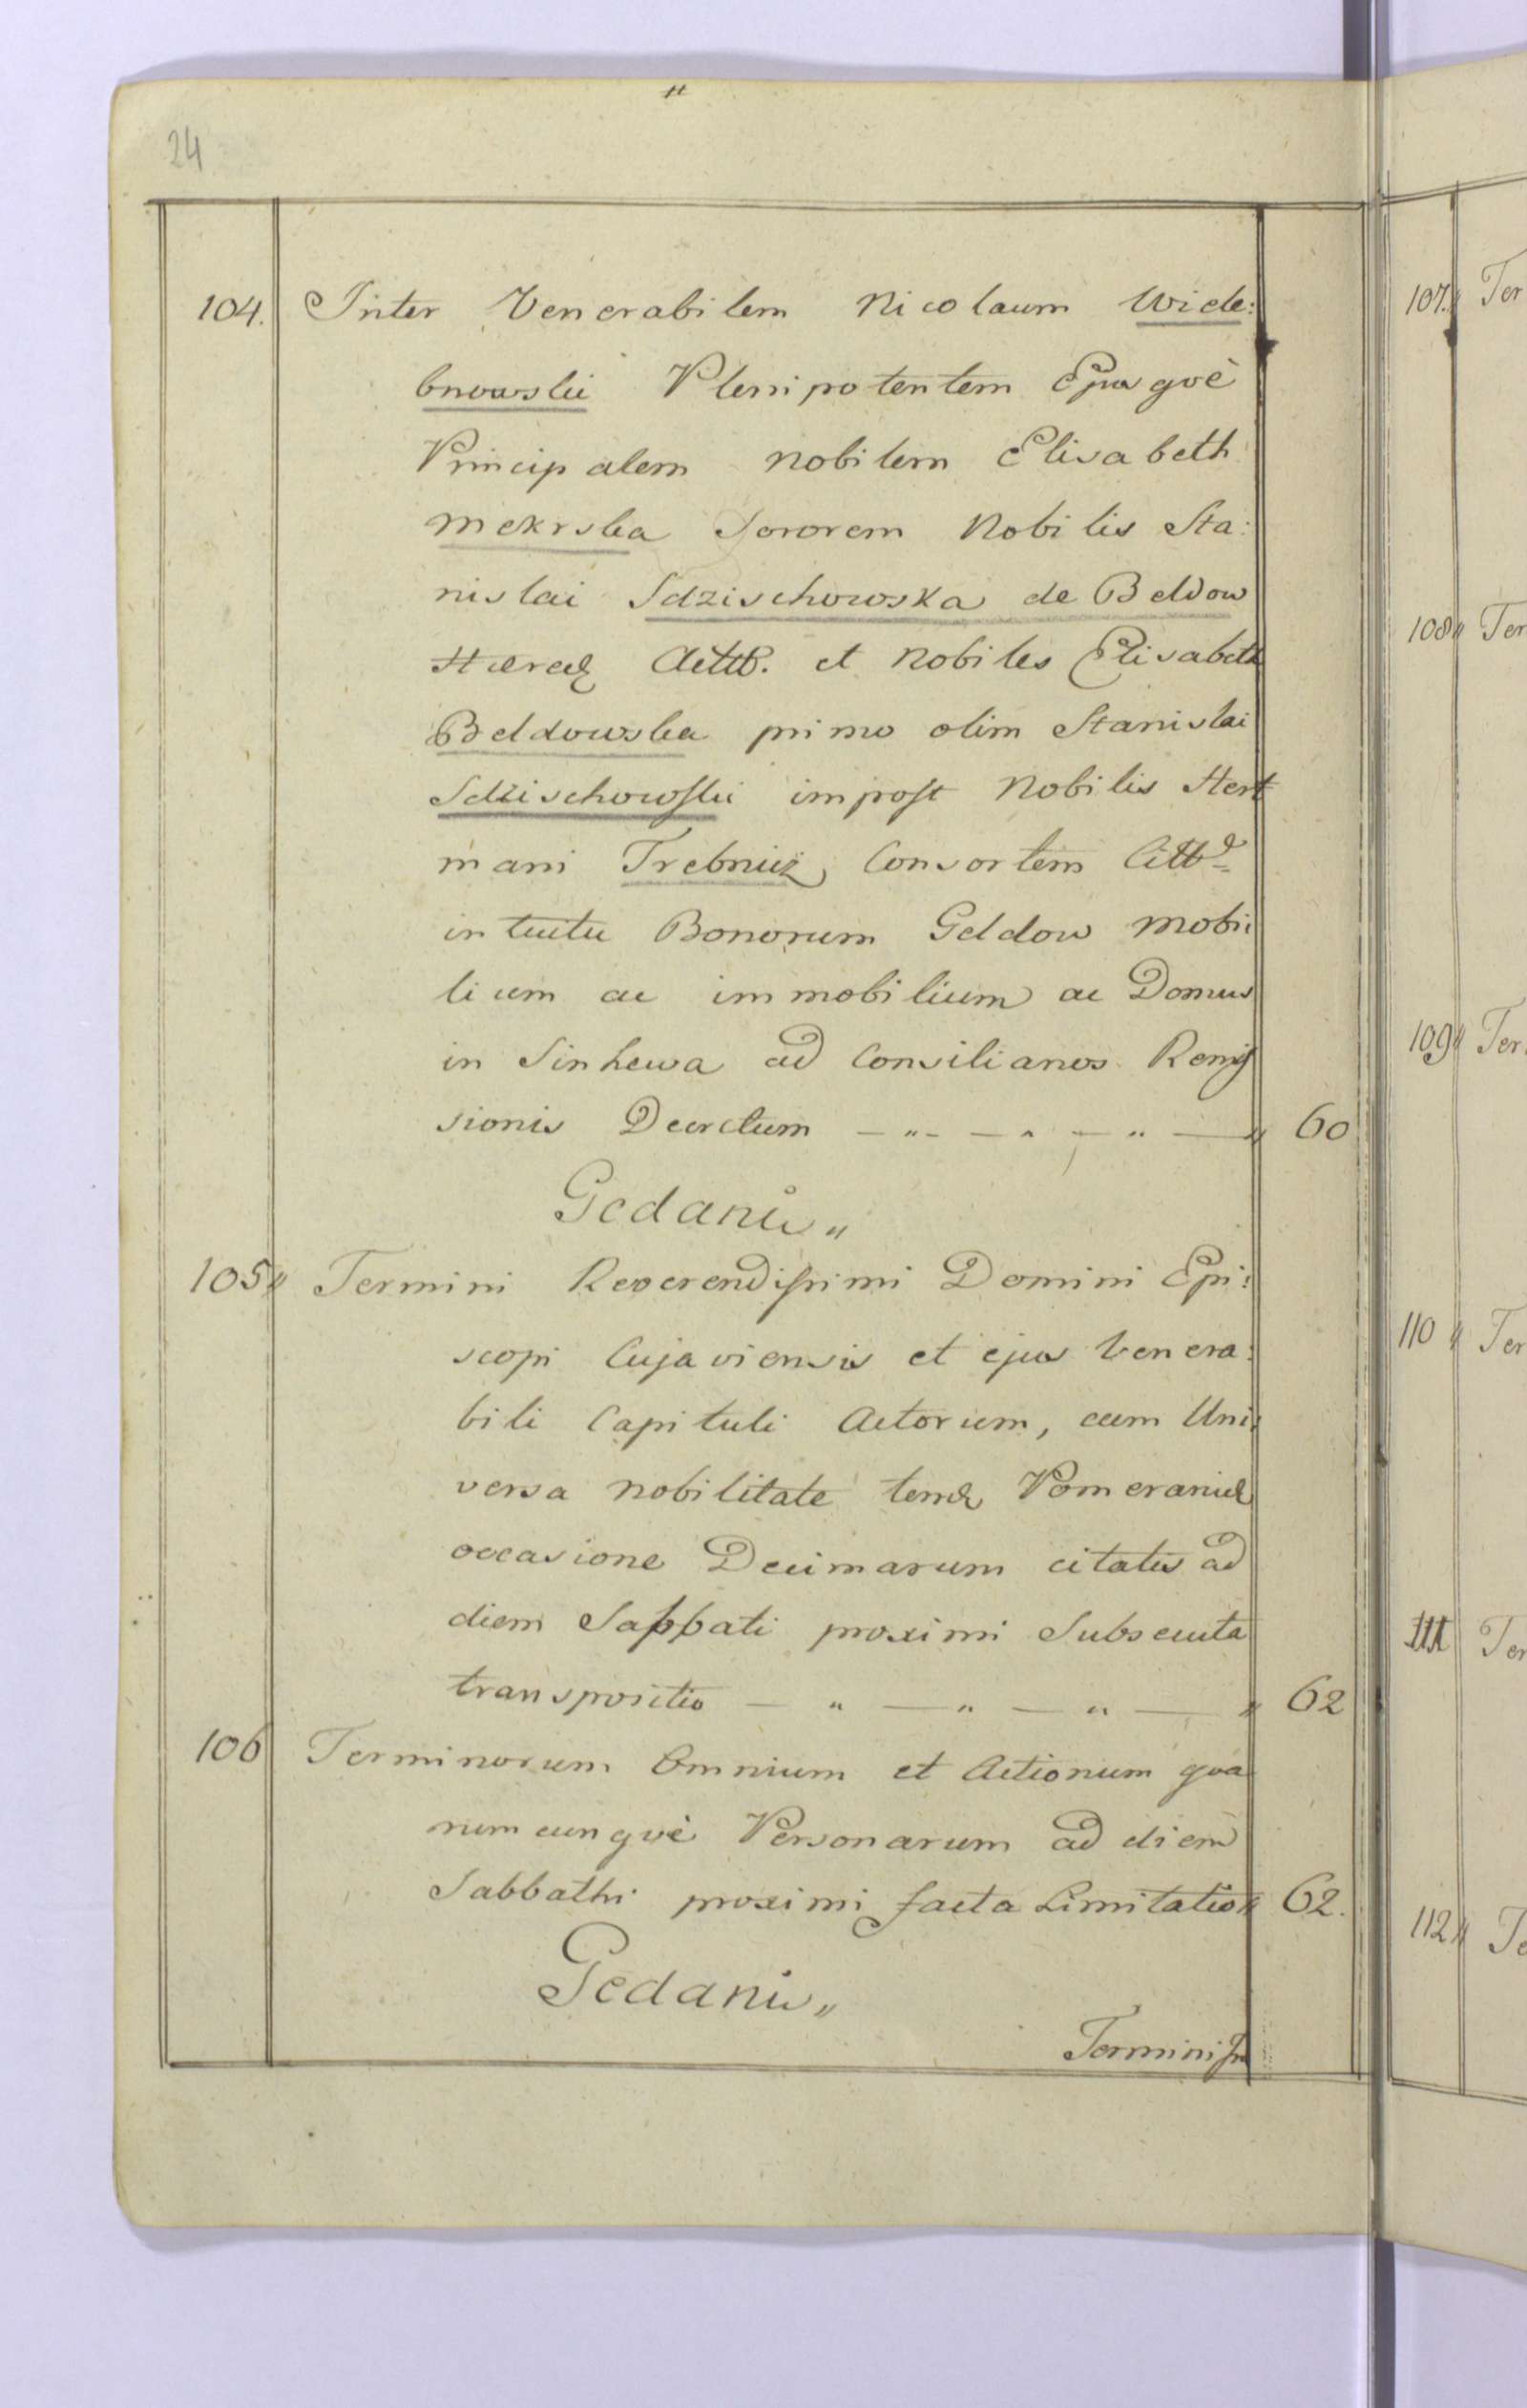 24
104. Inter Venerabilem Nicolaum Wide:
bnowski Plenipotentem Ejusqvè
Principalem Nobilem Elisabeth
Mekrska Sororem Nobilis Sta:
nislai Sdzischowska de Beldow
Hæred Actt. et Nobiles Elisabeth
Beldowska primo olim Stanislai
Sdzischowski impost Nobilis Her
mani Trebnicz Consortem Citt
intuitu Bonorum Geldow Mobi:
lium ac immobilium ac Domus
in Sinhewa ad Consilianos Remis
sionis Decretum — " — " — " — " 60
Gedani "
105 " Termini Reverendissimi Domini Epi:
scopi Cujaviensis et ejus Venera:
bili Capituli Actorum, cum Uni:
versa Nobilitate terræ Pomeraniæ
occasione Decimarum citatis ad
diem Sabbati proximi Subsecuta
transpositio — " — " — " — " 62
106 Terminorum Omnium et Actionum qva
rumcunqvè Personarum ad diem
Sabbathi proximi facta Limitatio " 62.
Gedani "
Termini
107. " Ter
108 " Ter
109 " Ter
110 " Ter
111 Ter
112 " Te